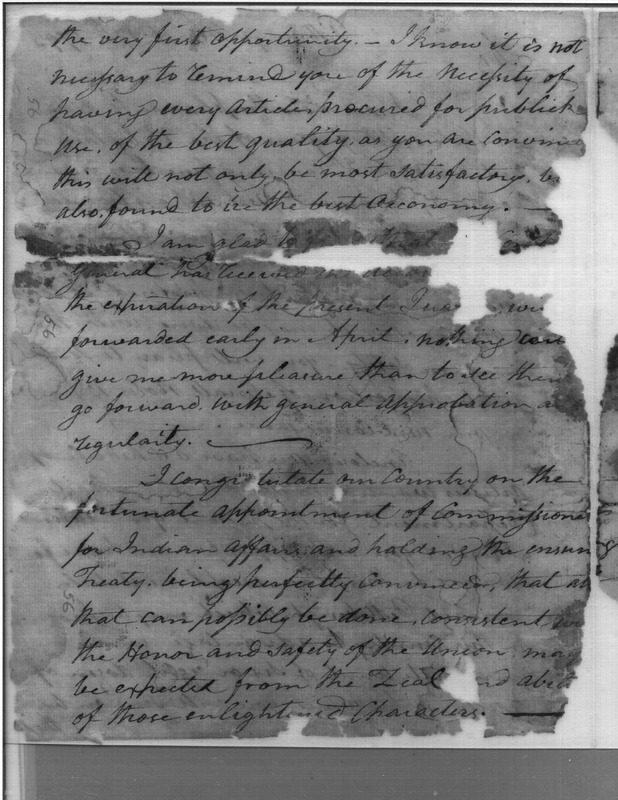 the very first opportunity. — I know it is not
necessary to remind you of the necessity of
having every Article procured for publick
use, of the best quality, as you are convin
this will not only be most satisfactory, b
also, found to be the best Œconomy. —
I am glad to that
General has received
the expiration of the present
forwarded early in April, nothing cou
give me more pleasure than to see them
go forward, with general approbation a
regularity.
I congr tulate our Country on the
fortunate appointment of Commissione
for Indian Affairs and holding the ensuing
Treaty, being perfectly convinced, that al
that can possibly be done, consistent, w
the Honor and safety of the Union, may
be expected from the Zeal nd abil
of those enlightened Characters. —
56
56
56